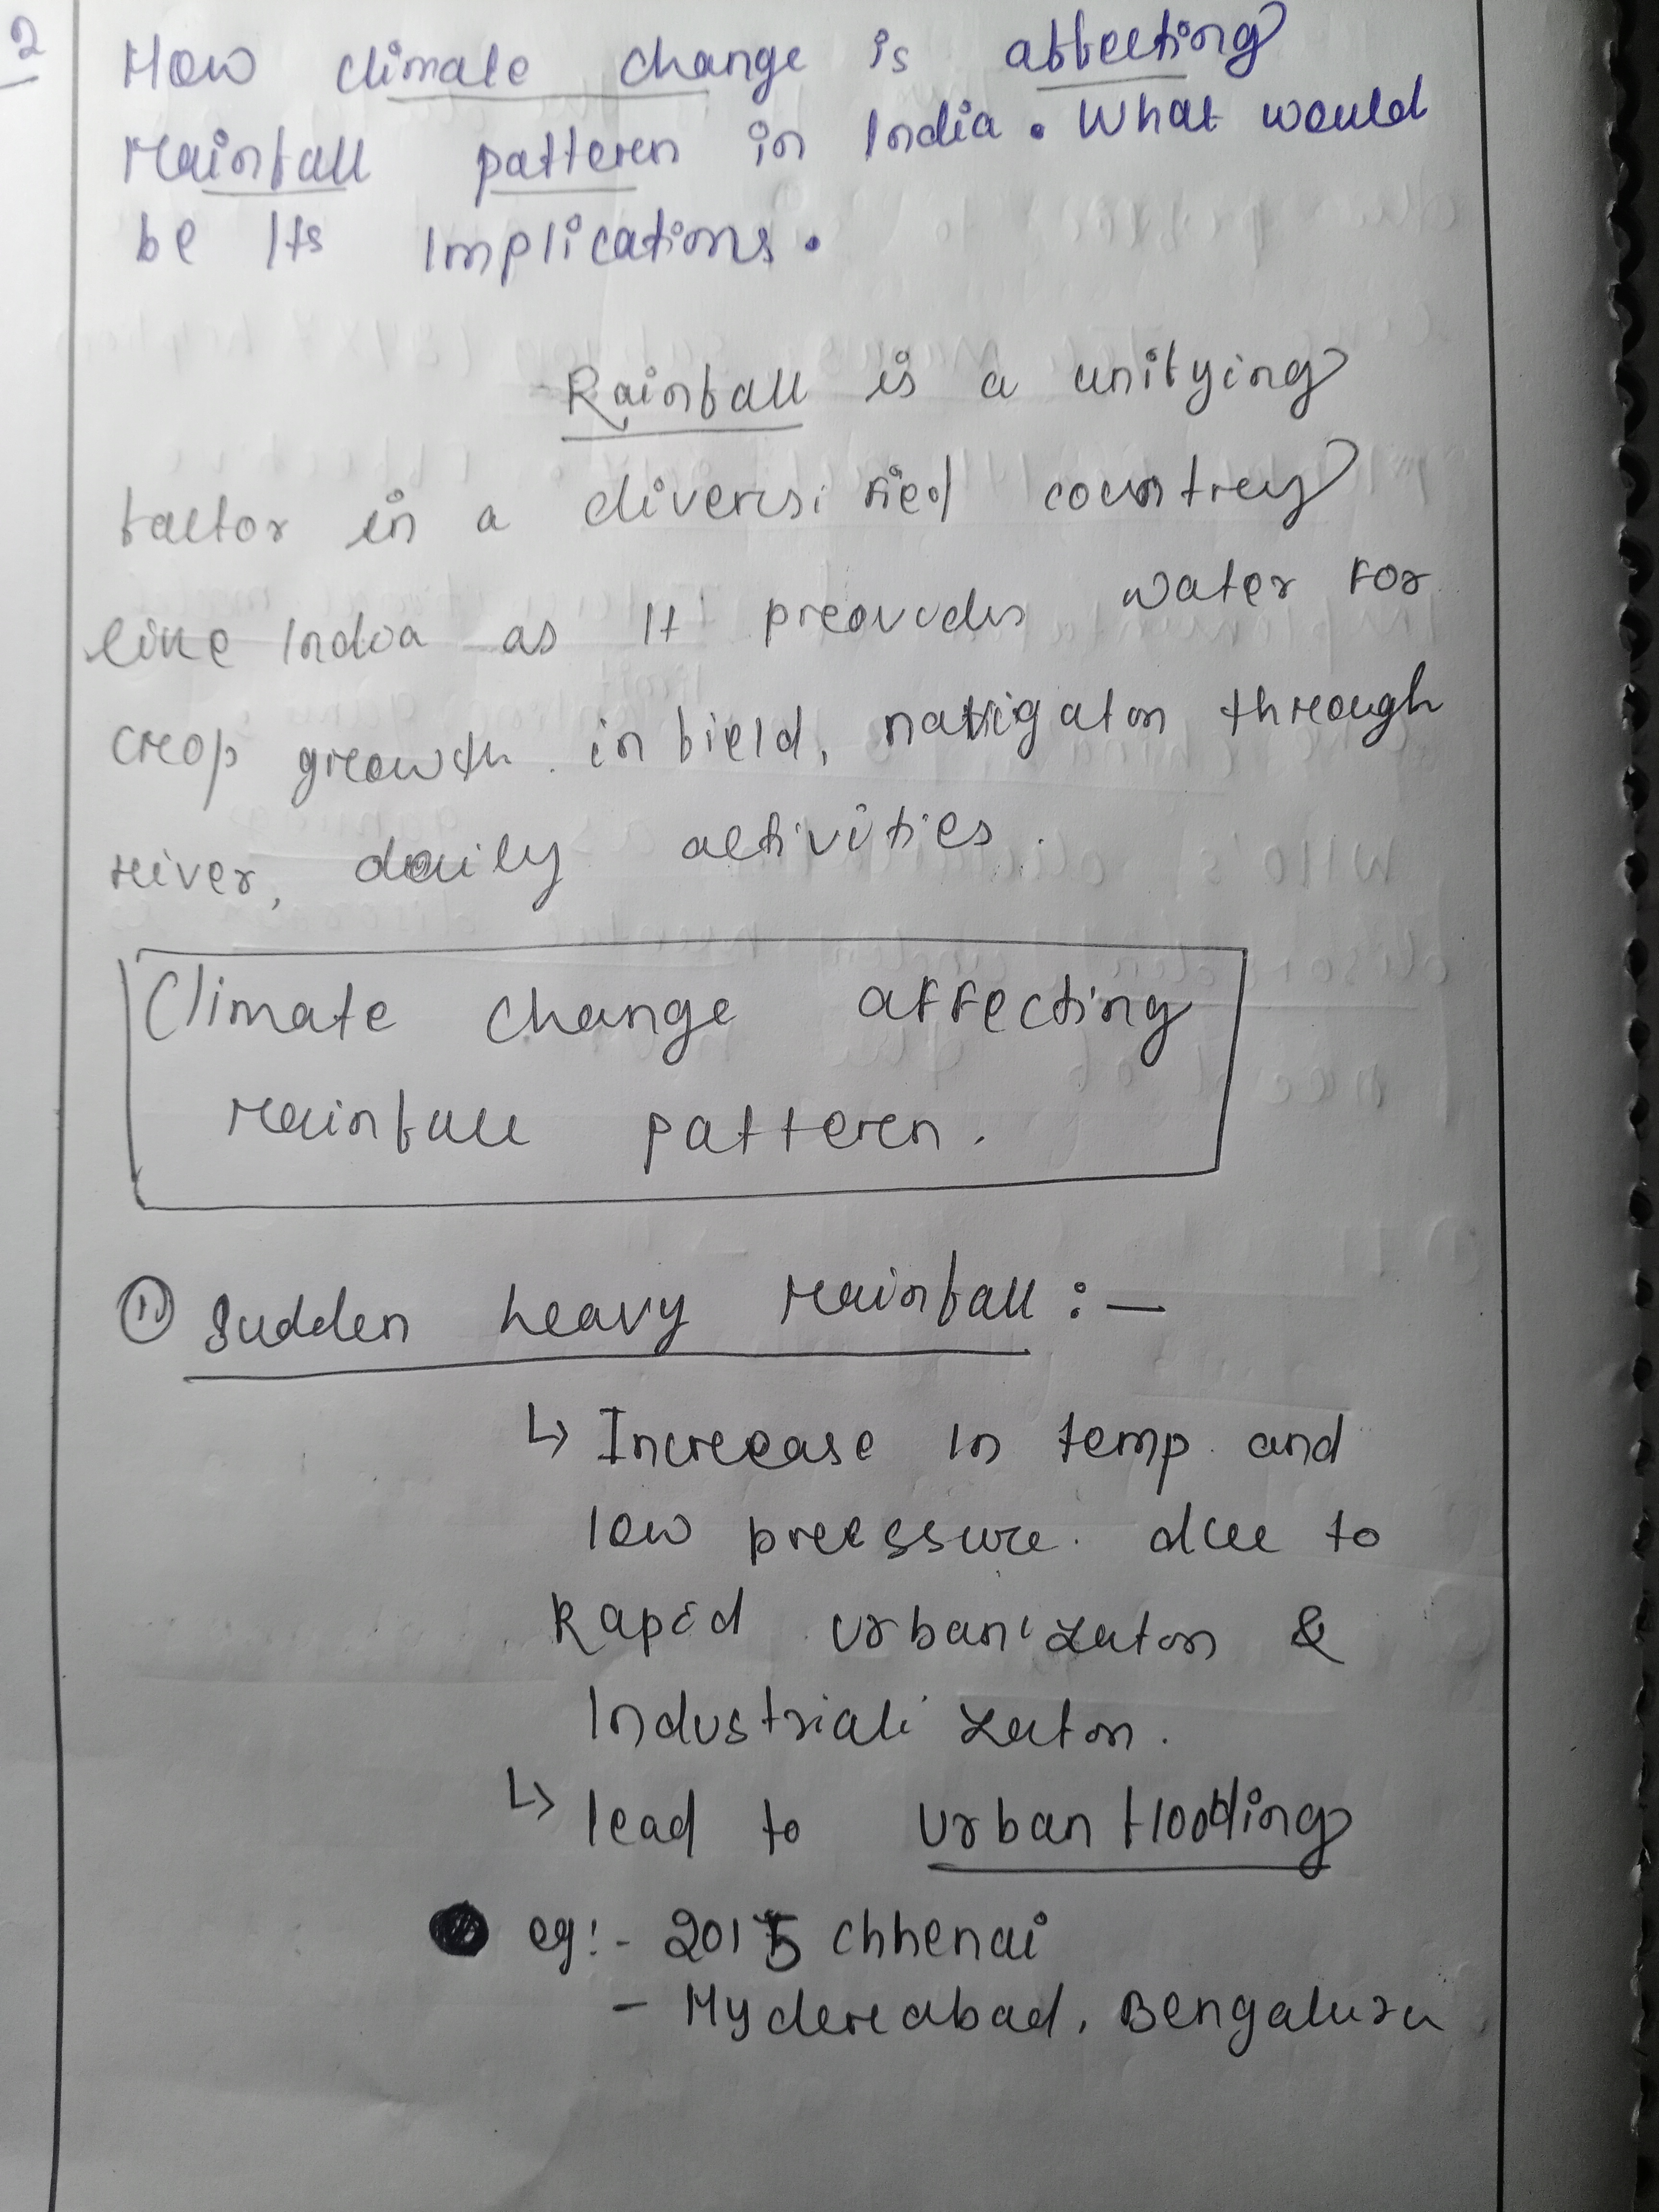 2
How climate change is affecting
rainfall pattern in India. What would
be Its Implications.
Rainfall is a unifying
factor in a diversified country
like India as It provides water For
crop growth in field, navigaton through
river, daily activities.
Climate change affecting
rainfall pattern.
1) Sudden heavy rainfall :-
↳ Increase in temp. and
low pressure. due to
Rapid urbanizaton &
Industrializaton.
↳ lead to urban flooding
eg:- 2015 Chhenai
- Hyderabad, Bengaluru